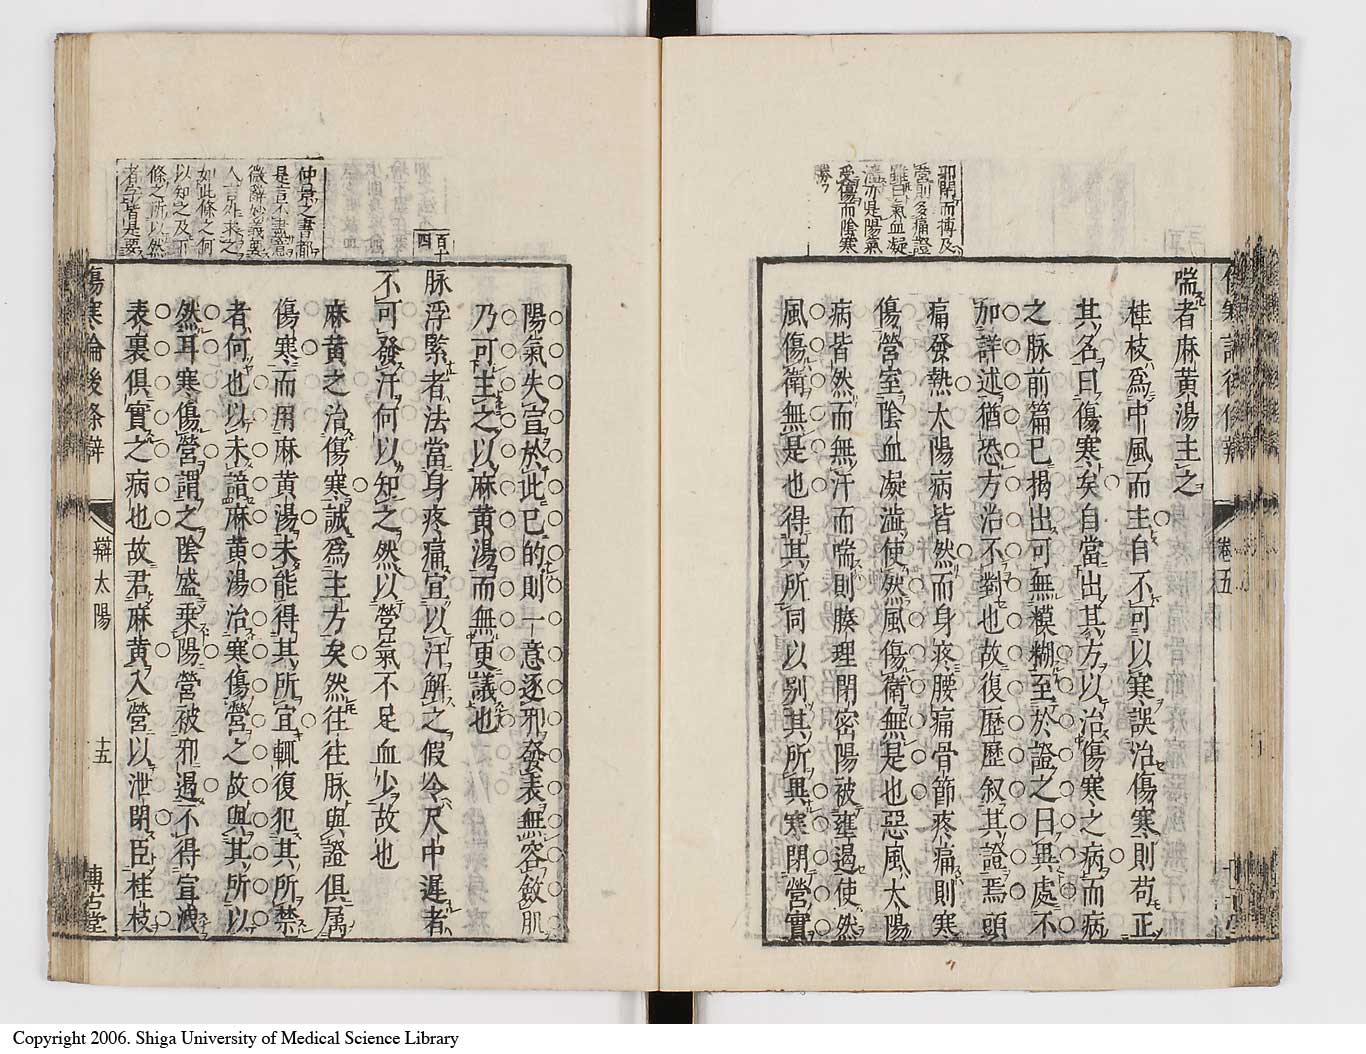 邪閉而摶及
營前多痛證
雖曰氣血凝
濇亦是陽氣
受傷而陰寒
勝
喘者麻黃湯主之
桂枝爲中風而主自不可以寒誤治傷寒則苟正
其名曰傷寒矣自當出其方以治傷寒之病而病
之脉前篇已揭出可無模糊至於證之日異處不
加詳述猶恐方治不對也故復歷歷叙其證焉頭
痛發熱太陽病皆然而身疼腰痛骨節疼痛則寒
傷營室陰血凝澁使然風傷衛無是也惡風太陽
病皆然而無汗而喘則腠理閉密陽被壅遏使然
風傷衛無是也得其所同以别其所異寒閉營實
卷五
陽氣失宣於此已的則一意逐邪發表無容斂肌
乃可主之以麻黃湯而無更議也
百十
四
脉浮緊者法當身疼痛宜以汗解之假令尺中遲者
不可發汗何以知之然以營氣不足血少故也
仲景之書都
是言不盡意
微辭妙義要
人言外求之
如此條之何
以知之及下
條之所以然
者字皆是要
麻黃之治傷寒誠爲主方矣然往往脉與證俱属
傷寒而用麻黃湯未能得其所宜輒復犯其所禁
者何也以未諳麻黃湯治寒傷營之故與其所以
然耳寒傷營謂之陰盛乘陽營被邪遏不得宣洩
表裏俱實之病也故君麻黃入營以泄閉臣桂枝
傷寒論後條辯
辯太陽
十五
博古堂
Copyright 2006. Shiga University of Medical Science Library